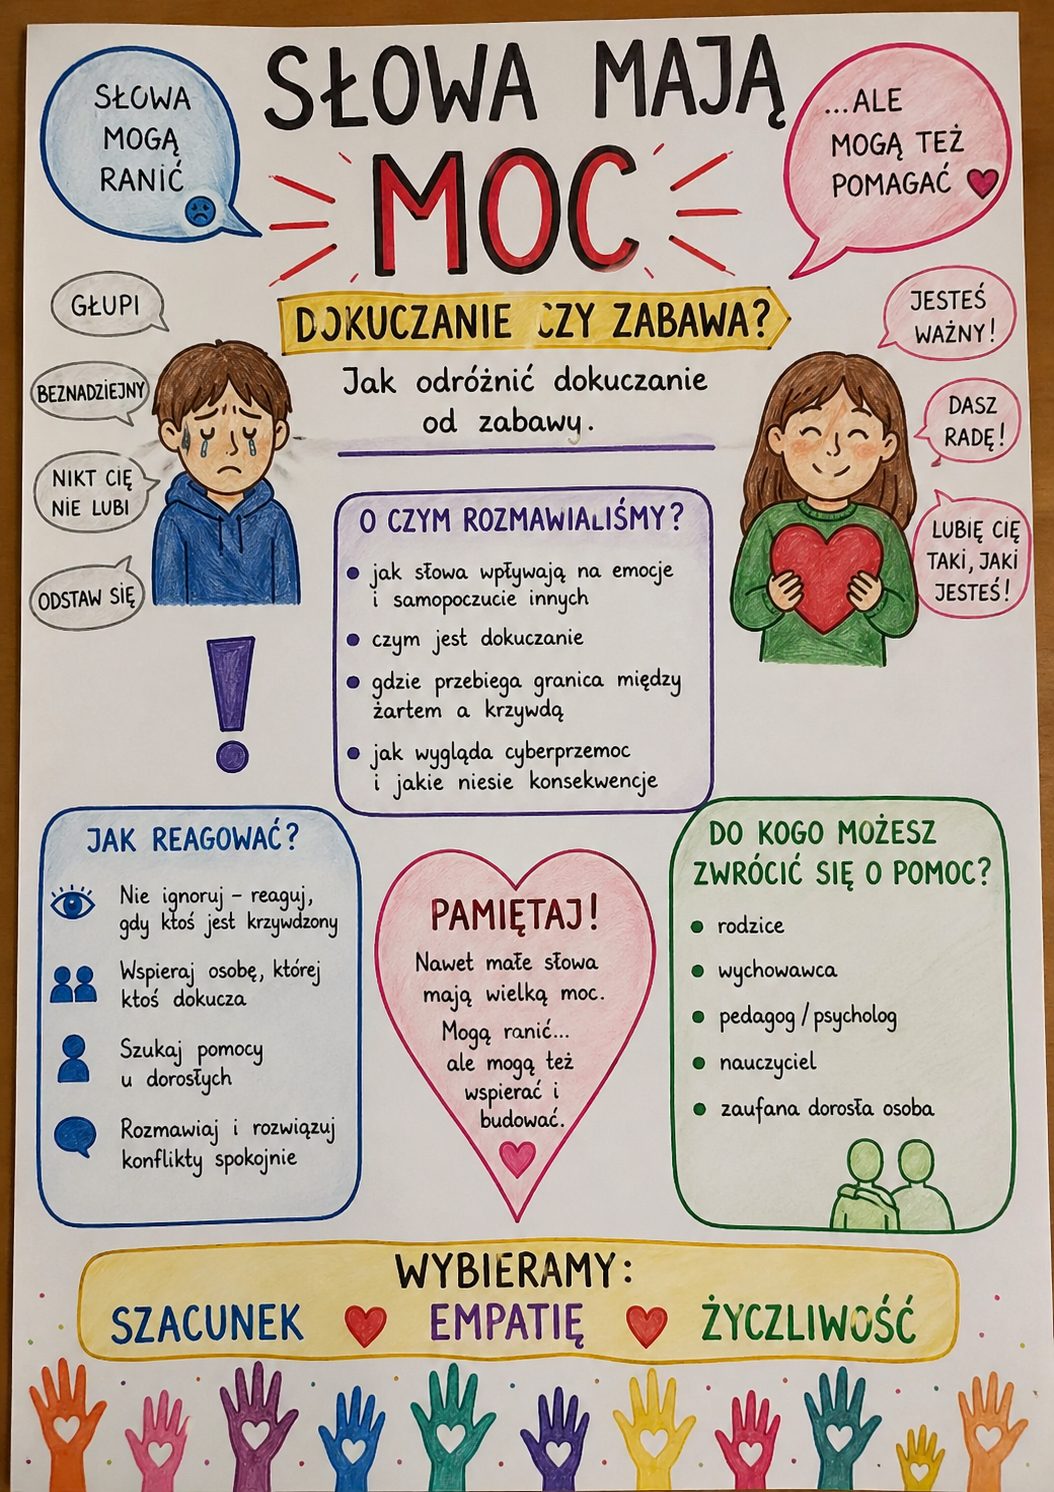 SŁOWA MAJĄ
MOC
SŁOWA
MOGĄ
RANIĆ
...ALE
MOGĄ TEŻ
POMAGAĆ
DOKUCZANIE CZY ZABAWA?
Jak odróżnić dokuczanie
od zabawy.
GŁUPI
BEZNADZIEJNY
NIKT CIĘ
NIE LUBI
ODSTAW SIĘ
JESTEŚ
WAŻNY!
DASZ
RADĘ!
LUBIĘ CIĘ
TAKI, JAKI
JESTEŚ!
O CZYM ROZMAWIALIŚMY?
• jak słowa wpływają na emocje
i samopoczucie innych
• czym jest dokuczanie
• gdzie przebiega granica między
żartem a krzywdą
• jak wygląda cyberprzemoc
i jakie niesie konsekwencje
!
JAK REAGOWAĆ?
Nie ignoruj – reaguj,
gdy ktoś jest krzywdzony
Wspieraj osobę, której
ktoś dokucza
Szukaj pomocy
u dorosłych
Rozmawiaj i rozwiązuj
konflikty spokojnie
PAMIĘTAJ!
Nawet małe słowa
mają wielką moc.
Mogą ranić...
ale mogą też
wspierać i
budować.
DO KOGO MOŻESZ
ZWRÓCIĆ SIĘ O POMOC?
• rodzice
• wychowawca
• pedagog / psycholog
• nauczyciel
• zaufana dorosła osoba
WYBIERAMY:
SZACUNEK EMPATIĘ ŻYCZLIWOŚĆ